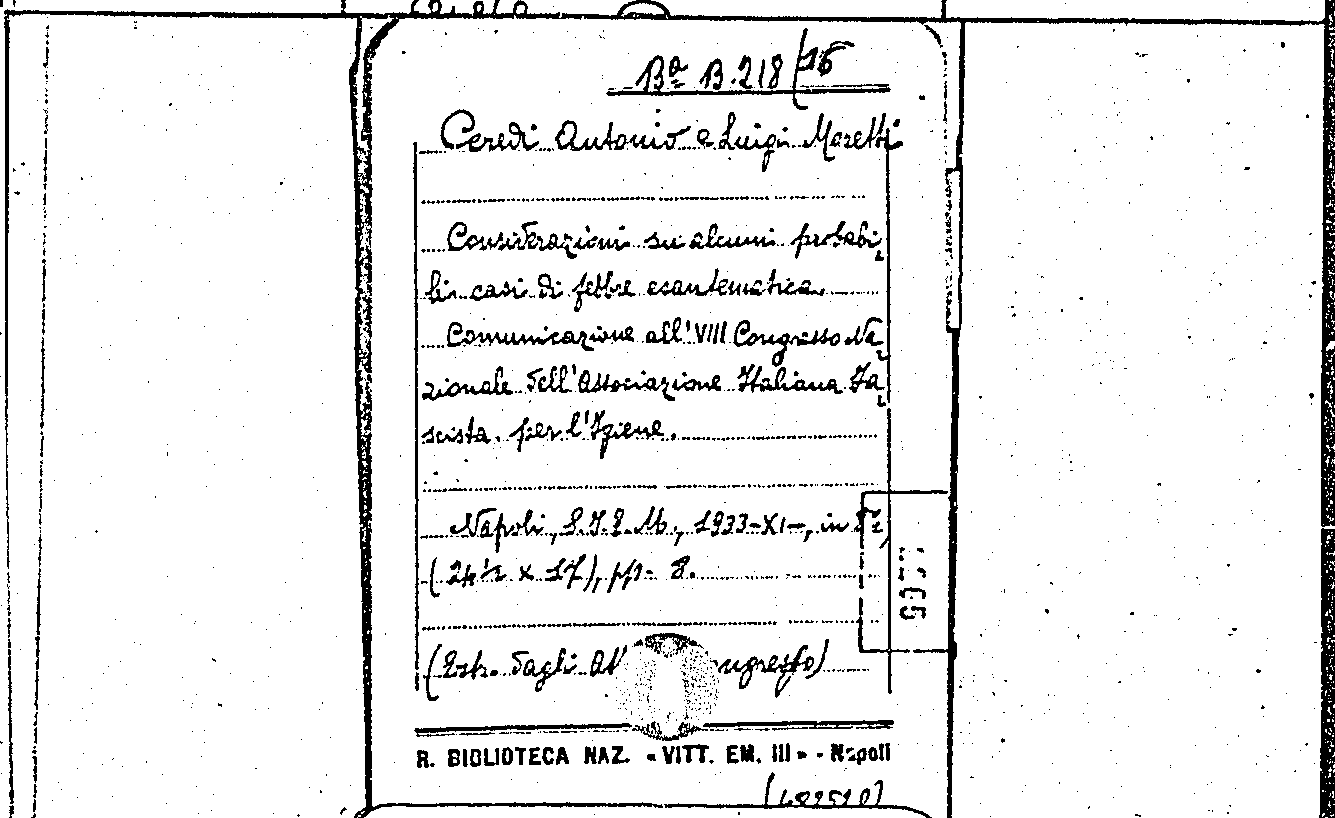 Ba B.218/16
Ceredi Antonio e Luigi Moretti
Considerazioni su alcuni probabi-
li casi di febbre esantematica.
Comunicazione all'VIII Congresso Na-
zionale dell'Associazione Italiana Fa-
scista per l'Igiene.
Napoli, S.I.E.M., 1933-XI-, in 8°,
(24½ x 17), pp. 8.
(Estr. dagli At ongresso)
R. BIBLIOTECA NAZ. «VITT. EM. III» - Napoli